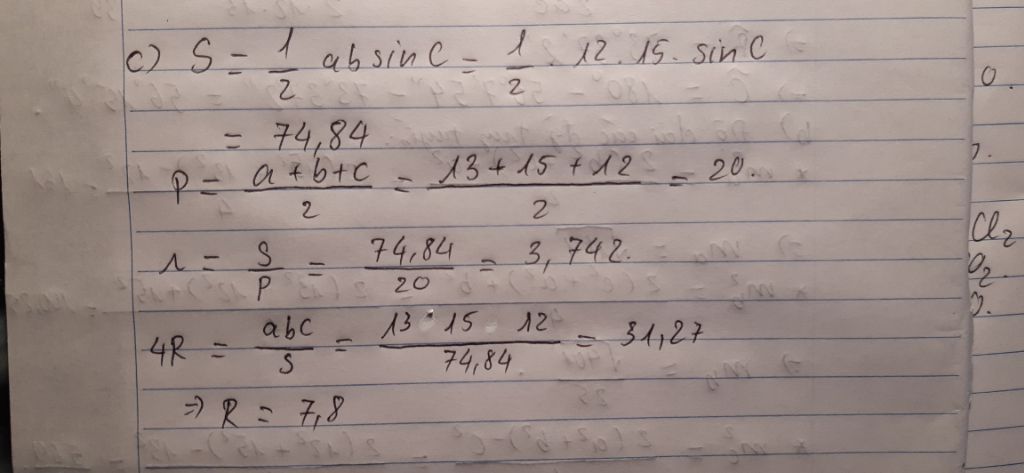 c) S = 1/2 ab sin C = 1/2 . 12 . 15 . sin C
= 74,84
P = (a + b + c)/2 = (13 + 15 + 12)/2 = 20.
r = S/P = 74,84/20 = 3,742.
4R = abc/S = (13 . 15 . 12)/74,84 = 31,27
=> R = 7,8
0.
Cl2
O2.